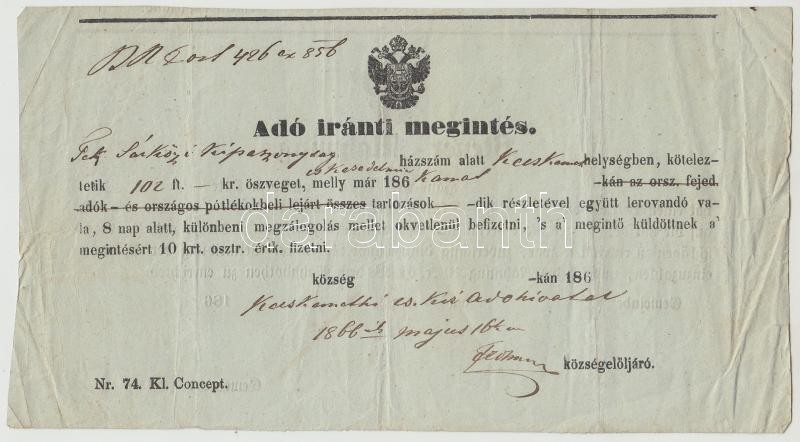 426 ex 856
Adó iránti megintés.
Sárközi házszám alatt Kecskemet helységben, kötelez-
tetik 102 ft. — kr. öszveget, melly már 186 Kamat -kán az orsz. fejed.
adók- és országos pótlékokbeli lejárt összes tartozások -dik részletével együtt lerovandó va-
la, 8 nap alatt, különbeni megzálogolás mellet okvetlenül befizetni, 's a' megintő küldöttnek a'
megintésért 10 krt. osztr. értk. fizetni.
község -kán 186
Kecskemethi cs. Kir Adohivatal
1866 május 16
községelöljáró.
Nr. 74. Kl. Concept.
darabanth